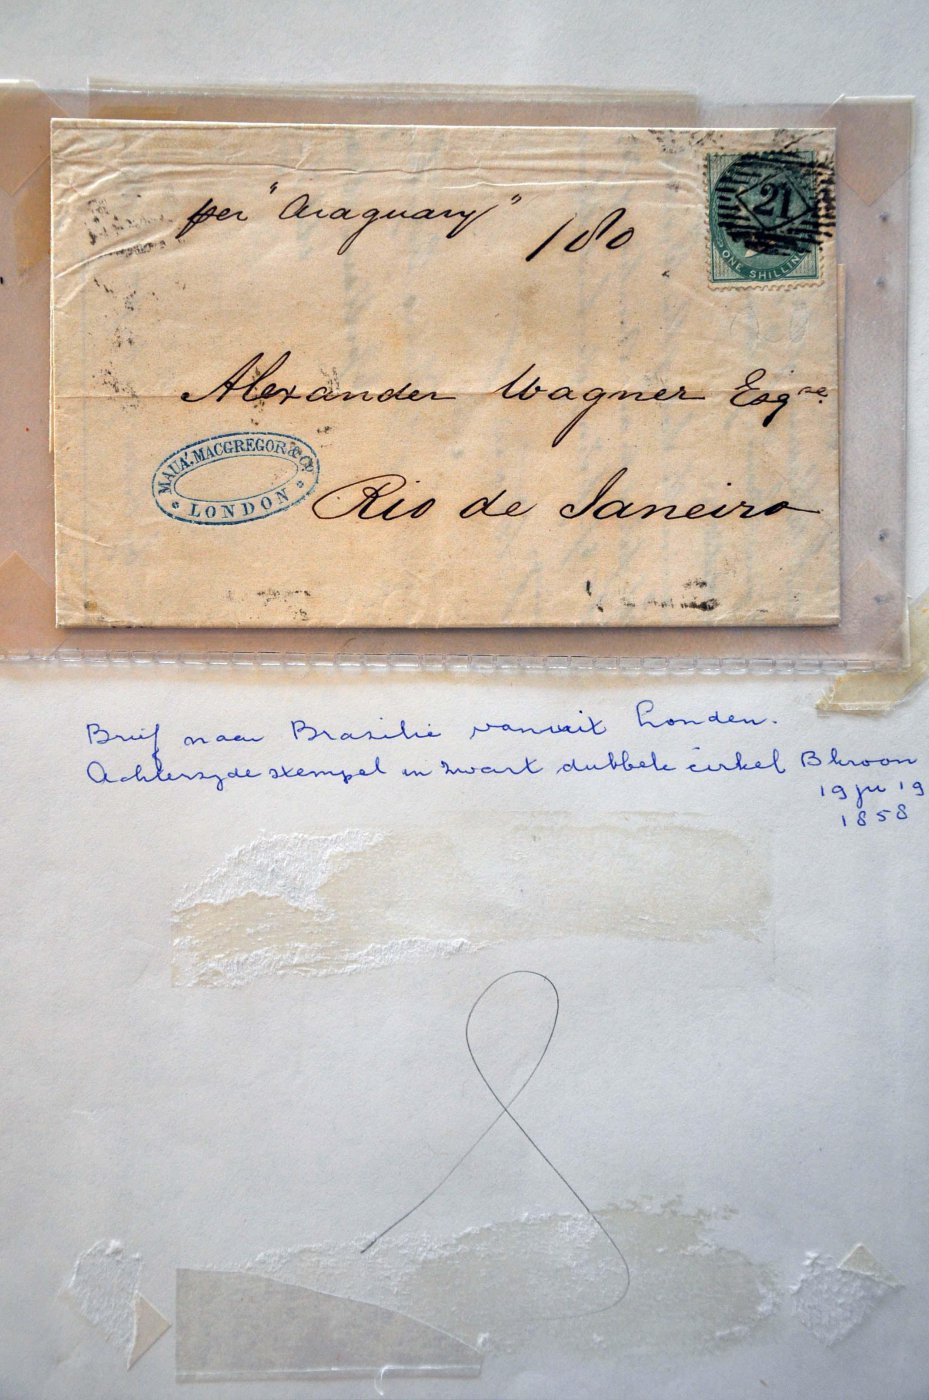 per "Araguary"
180
21
ONE SHILLING
Alexander Wagner Esqre.
MAUÁ. MACGREGOR & Co
LONDON
Rio de Janeiro
Brief naar Brasilie vanuit Londen.
Achterzyde stempel in zwart dubbele cirkel
19 1858